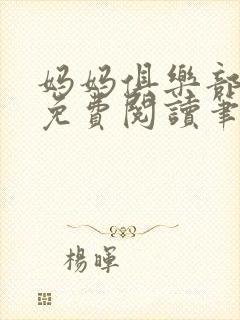 妈妈俱樂部
免費閱讀筆
楊暉